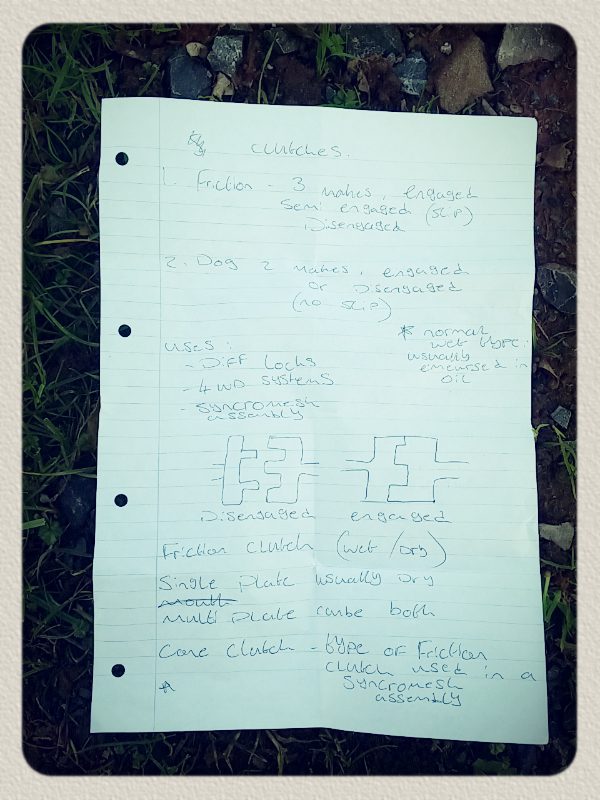 clutches.
1. Friction - 3 makes, engaged
Semi engaged (slip)
Disengaged
2. Dog 2 makes, engaged
or Disengaged
(no slip)
* normal
wet type:
usually
emeursed in
oil
uses:
- Diff locks
- 4WD systems
- Syncromesh
assembly
Disengaged engaged
Friction clutch (wet/Dry)
Single plate usually Dry
multi plate canbe both
Cone clutch - type of Friction
clutch used in a
Syncromesh
assembly
*